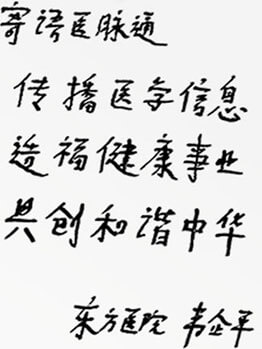 寄语医脉通
传播医学信息
造福健康事业
共创和谐中华
东方医院 韦企平